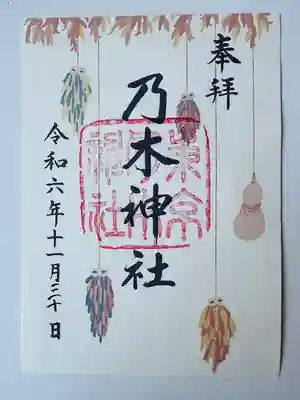 奉拝
乃木神社
東京乃木神社
令和六年十一月二十日